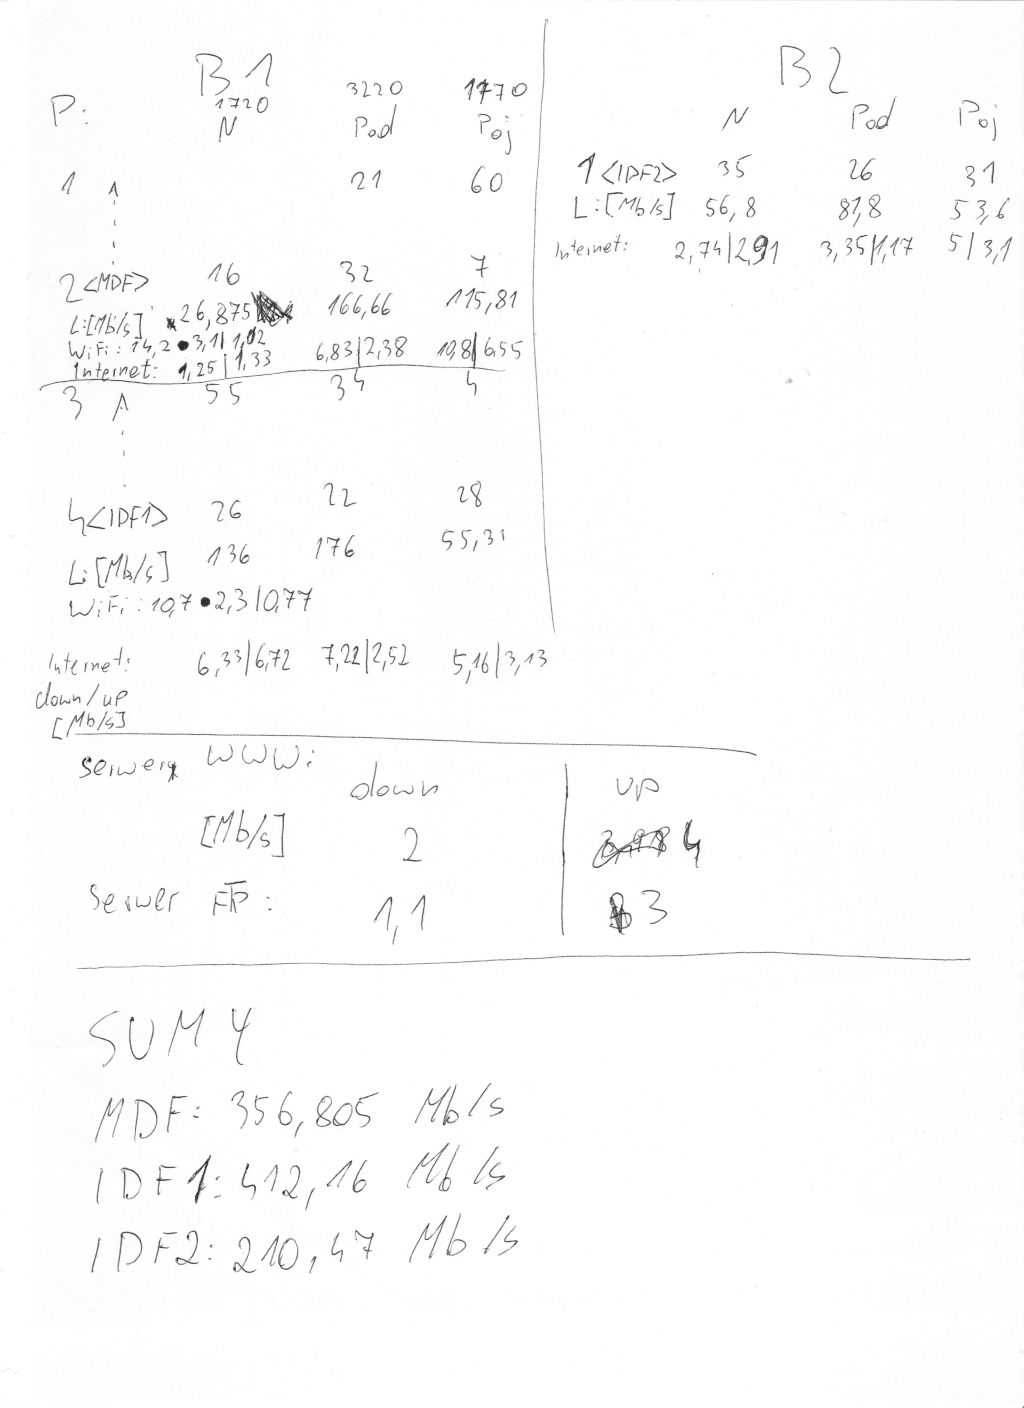 B1
P: 1720 3220 1770
N Pod Poj
1 21 60
2 <MDF> 16 32 7
L:[Mb/s] 26,875 166,66 115,81
WiFi: 14,2 • 3,1|1,02
Internet: 1,25|1,33 6,83|2,38 10,8|6,55
3 55 34 4
4 <IDF1> 26 22 28
L:[Mb/s] 136 176 55,31
WiFi: 10,7 • 2,3|0,77
Internet: 6,33|6,72 7,22|2,52 5,16|3,13
down/up
[Mb/s]
B2
N Pod Poj
1 <IDF2> 35 26 31
L:[Mb/s] 56,8 81,8 53,6
Internet: 2,74|2,91 3,35|1,17 5|3,1
Serwery WWW:
down up
[Mb/s] 2 4
Serwer FTP: 1,1 3
SUMY
MDF: 356,805 Mb/s
IDF1: 412,16 Mb/s
IDF2: 210,47 Mb/s